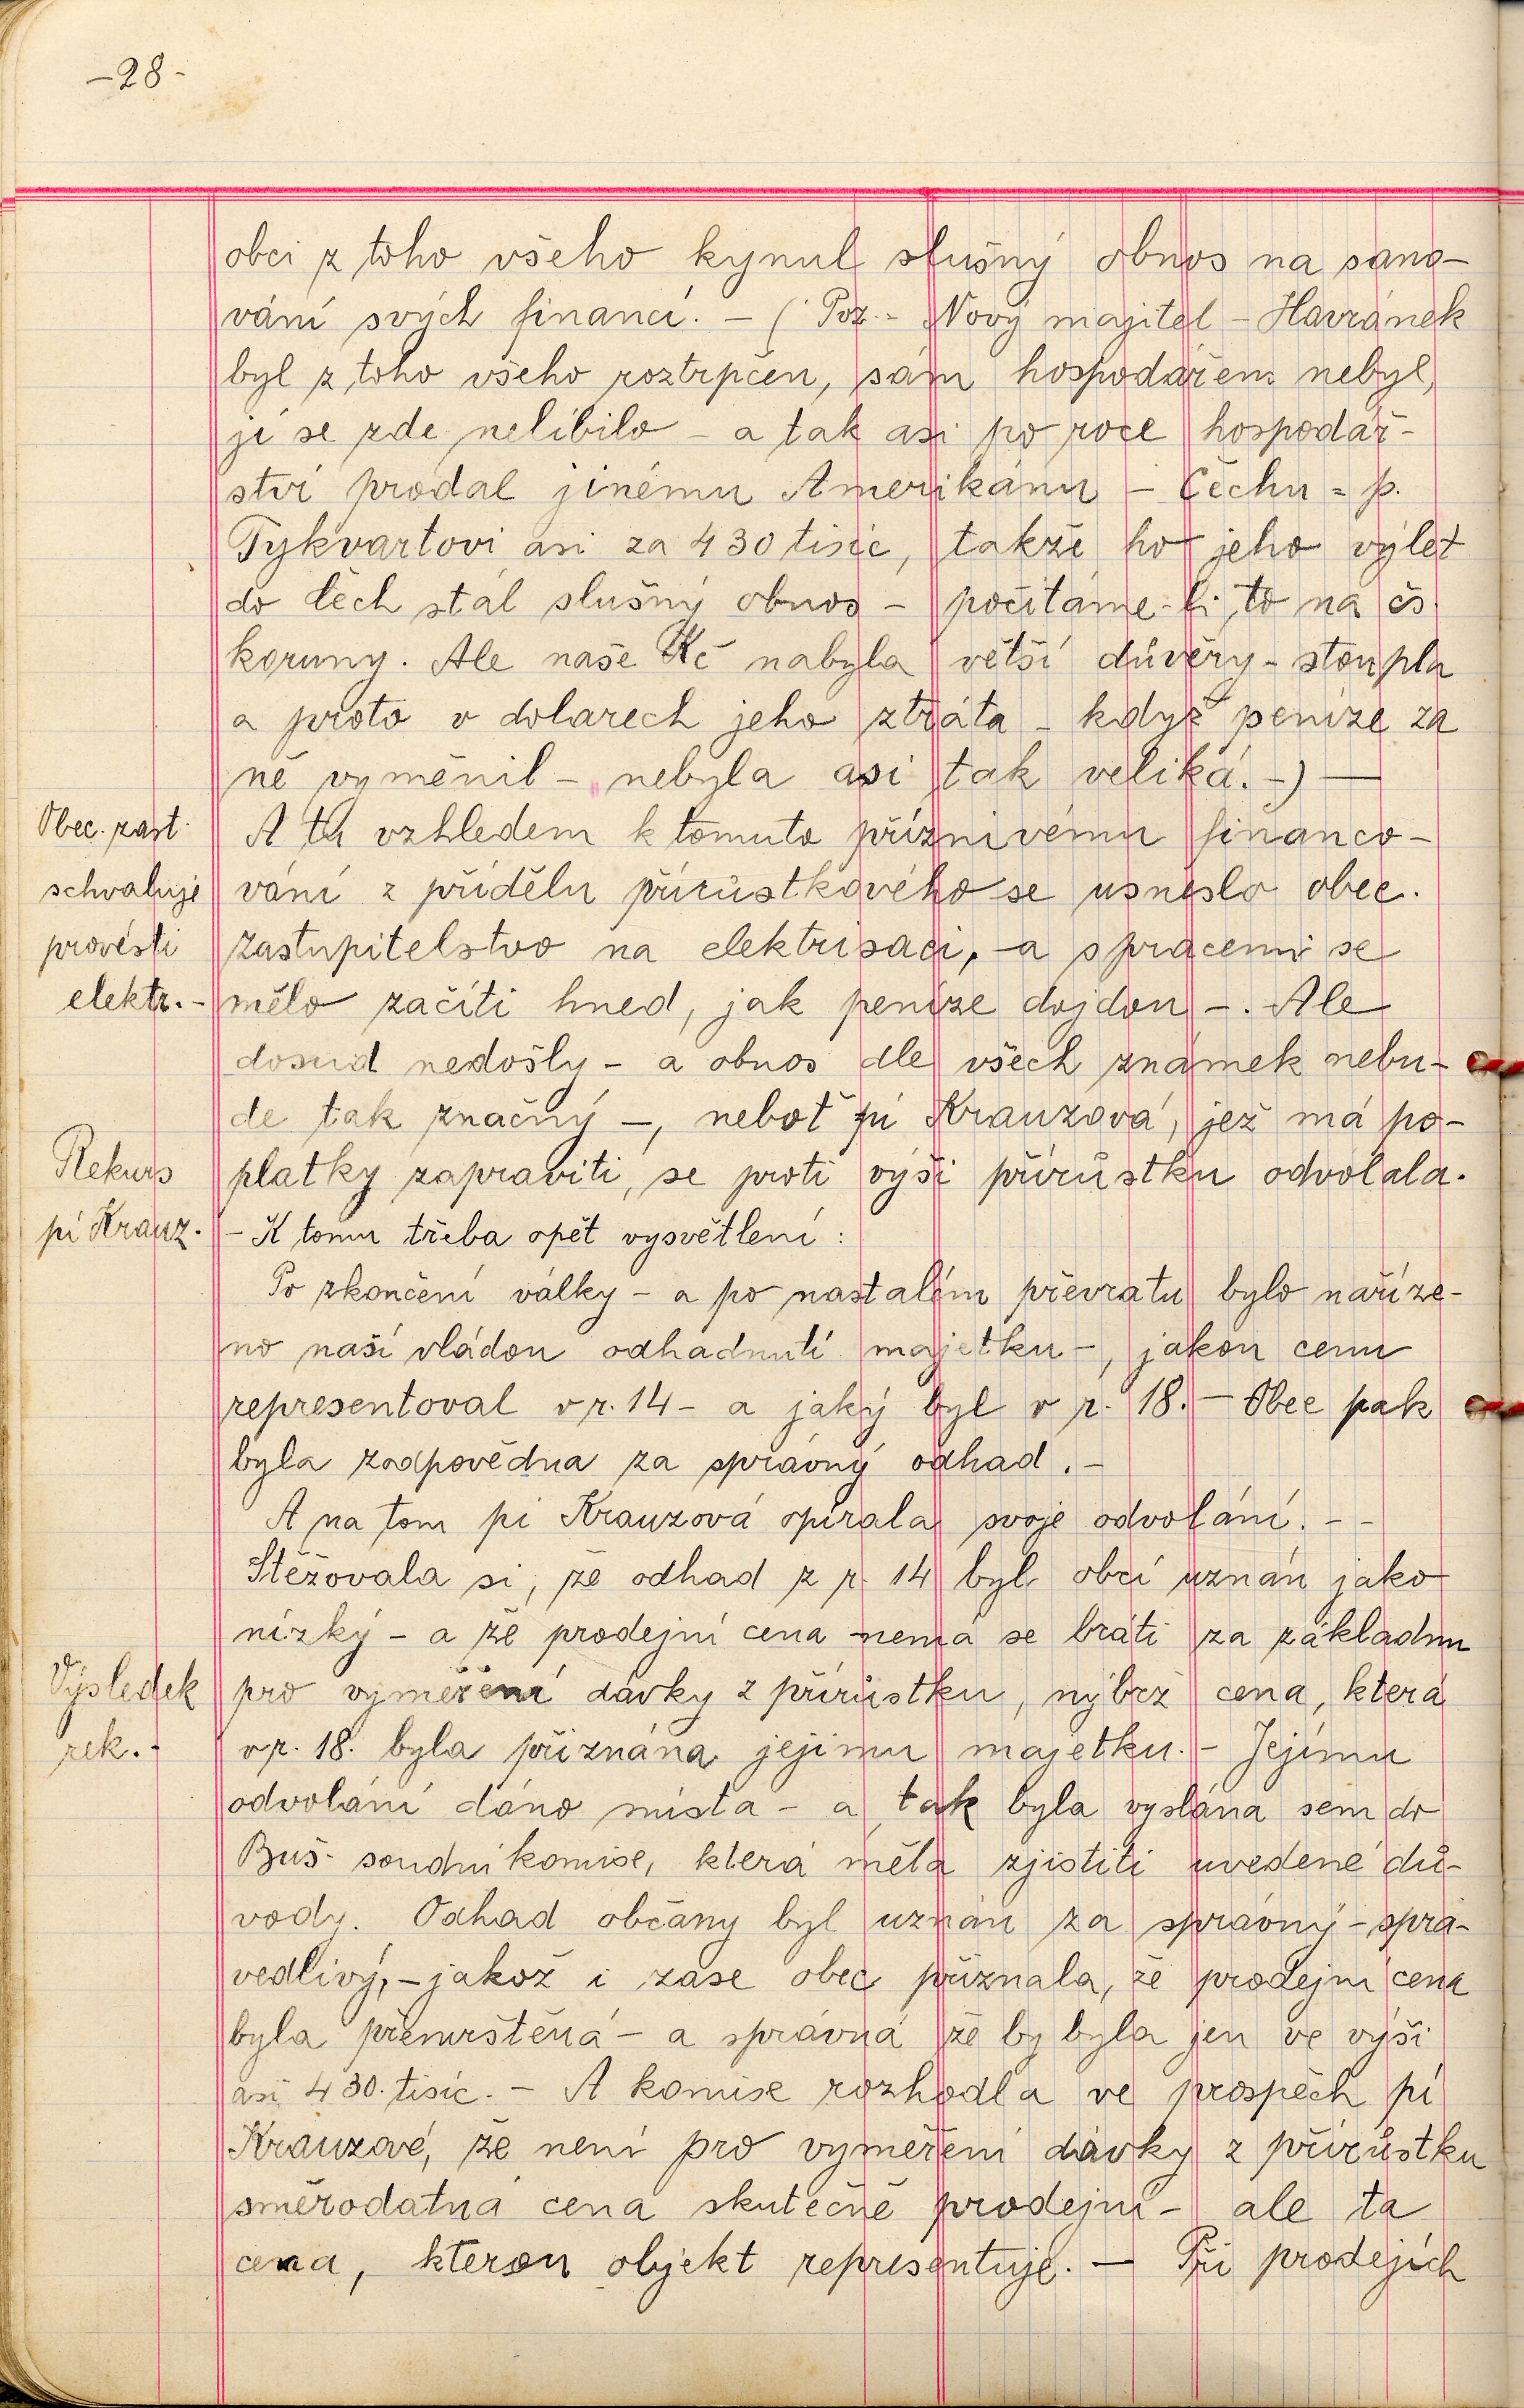 -28-
obci z toho všeho kynul slušný obnos na sano-
vání svých financí. - (Poz.- Nový majitel - Havránek
byl z toho všeho roztrpčen, sám hospodářem nebyl,
jí se zde nelíbilo - a tak asi po roce hospodář-
ství prodal jinému Amerikánu - Čechu = p.
Tykvartovi asi za 430 tisíc, takže ho jeho výlet
do Čech stál slušný obnos - počítáme-li to na čs.
koruny. Ale naše Kč nabyla větší důvěry - stoupla
a proto v dolarech jeho ztráta - když peníze za
ně vyměnil - nebyla asi tak veliká. -) —
Obec. zast.
schvaluje
provésti
elektr. -
A tu vzhledem k tomuto příznivému financo-
vání z přídělu přírůstkového se usneslo obec.
zastupitelstvo na elektrisaci, - a s pracemi se
mělo začíti hned, jak peníze dojdou -. Ale
dosud nedošly - a obnos dle všech známek nebu-
de tak značný -, neboť pí Krauzová, jež má po-
Rekurs
pí Krauz.
platky zapraviti, se proti výši přírůstku odvolala.
- K tomu třeba opět vysvětlení :
Po skončení války - a po nastalém převratu bylo naříze-
no naší vládou odhadnutí majetku -, jakou cenu
representoval v r. 14 - a jaký byl v r. 18. - Obec pak
byla zodpovědna za správný odhad. -
A na tom pí Krauzová opírala svoje odvolání. - -
Stěžovala si, že odhad z r. 14 byl obcí uznán jako
nízký - a že prodejní cena nemá se bráti za základnu
Výsledek
rek. -
pro vyměření dávky z přírůstku, nýbrž cena, která
v r. 18. byla přiznána jejímu majetku. - Jejímu
odvolání dáno místa - a tak byla vyslána sem do
Buš. soudní komise, která měla zjistiti uvedené dů-
vody. Odhad občany byl uznán za správný - spra-
vedlivý, - jakož i zase obec přiznala, že prodejní cena
byla přemrštěná - a správná že by byla jen ve výši
asi 430. tisíc. - A komise rozhodla ve prospěch pí
Krauzové, že není pro vyměření dávky z přírůstku
směrodatná cena skutečně prodejní - ale ta
cena, kterou objekt representuje. — Při prodejích